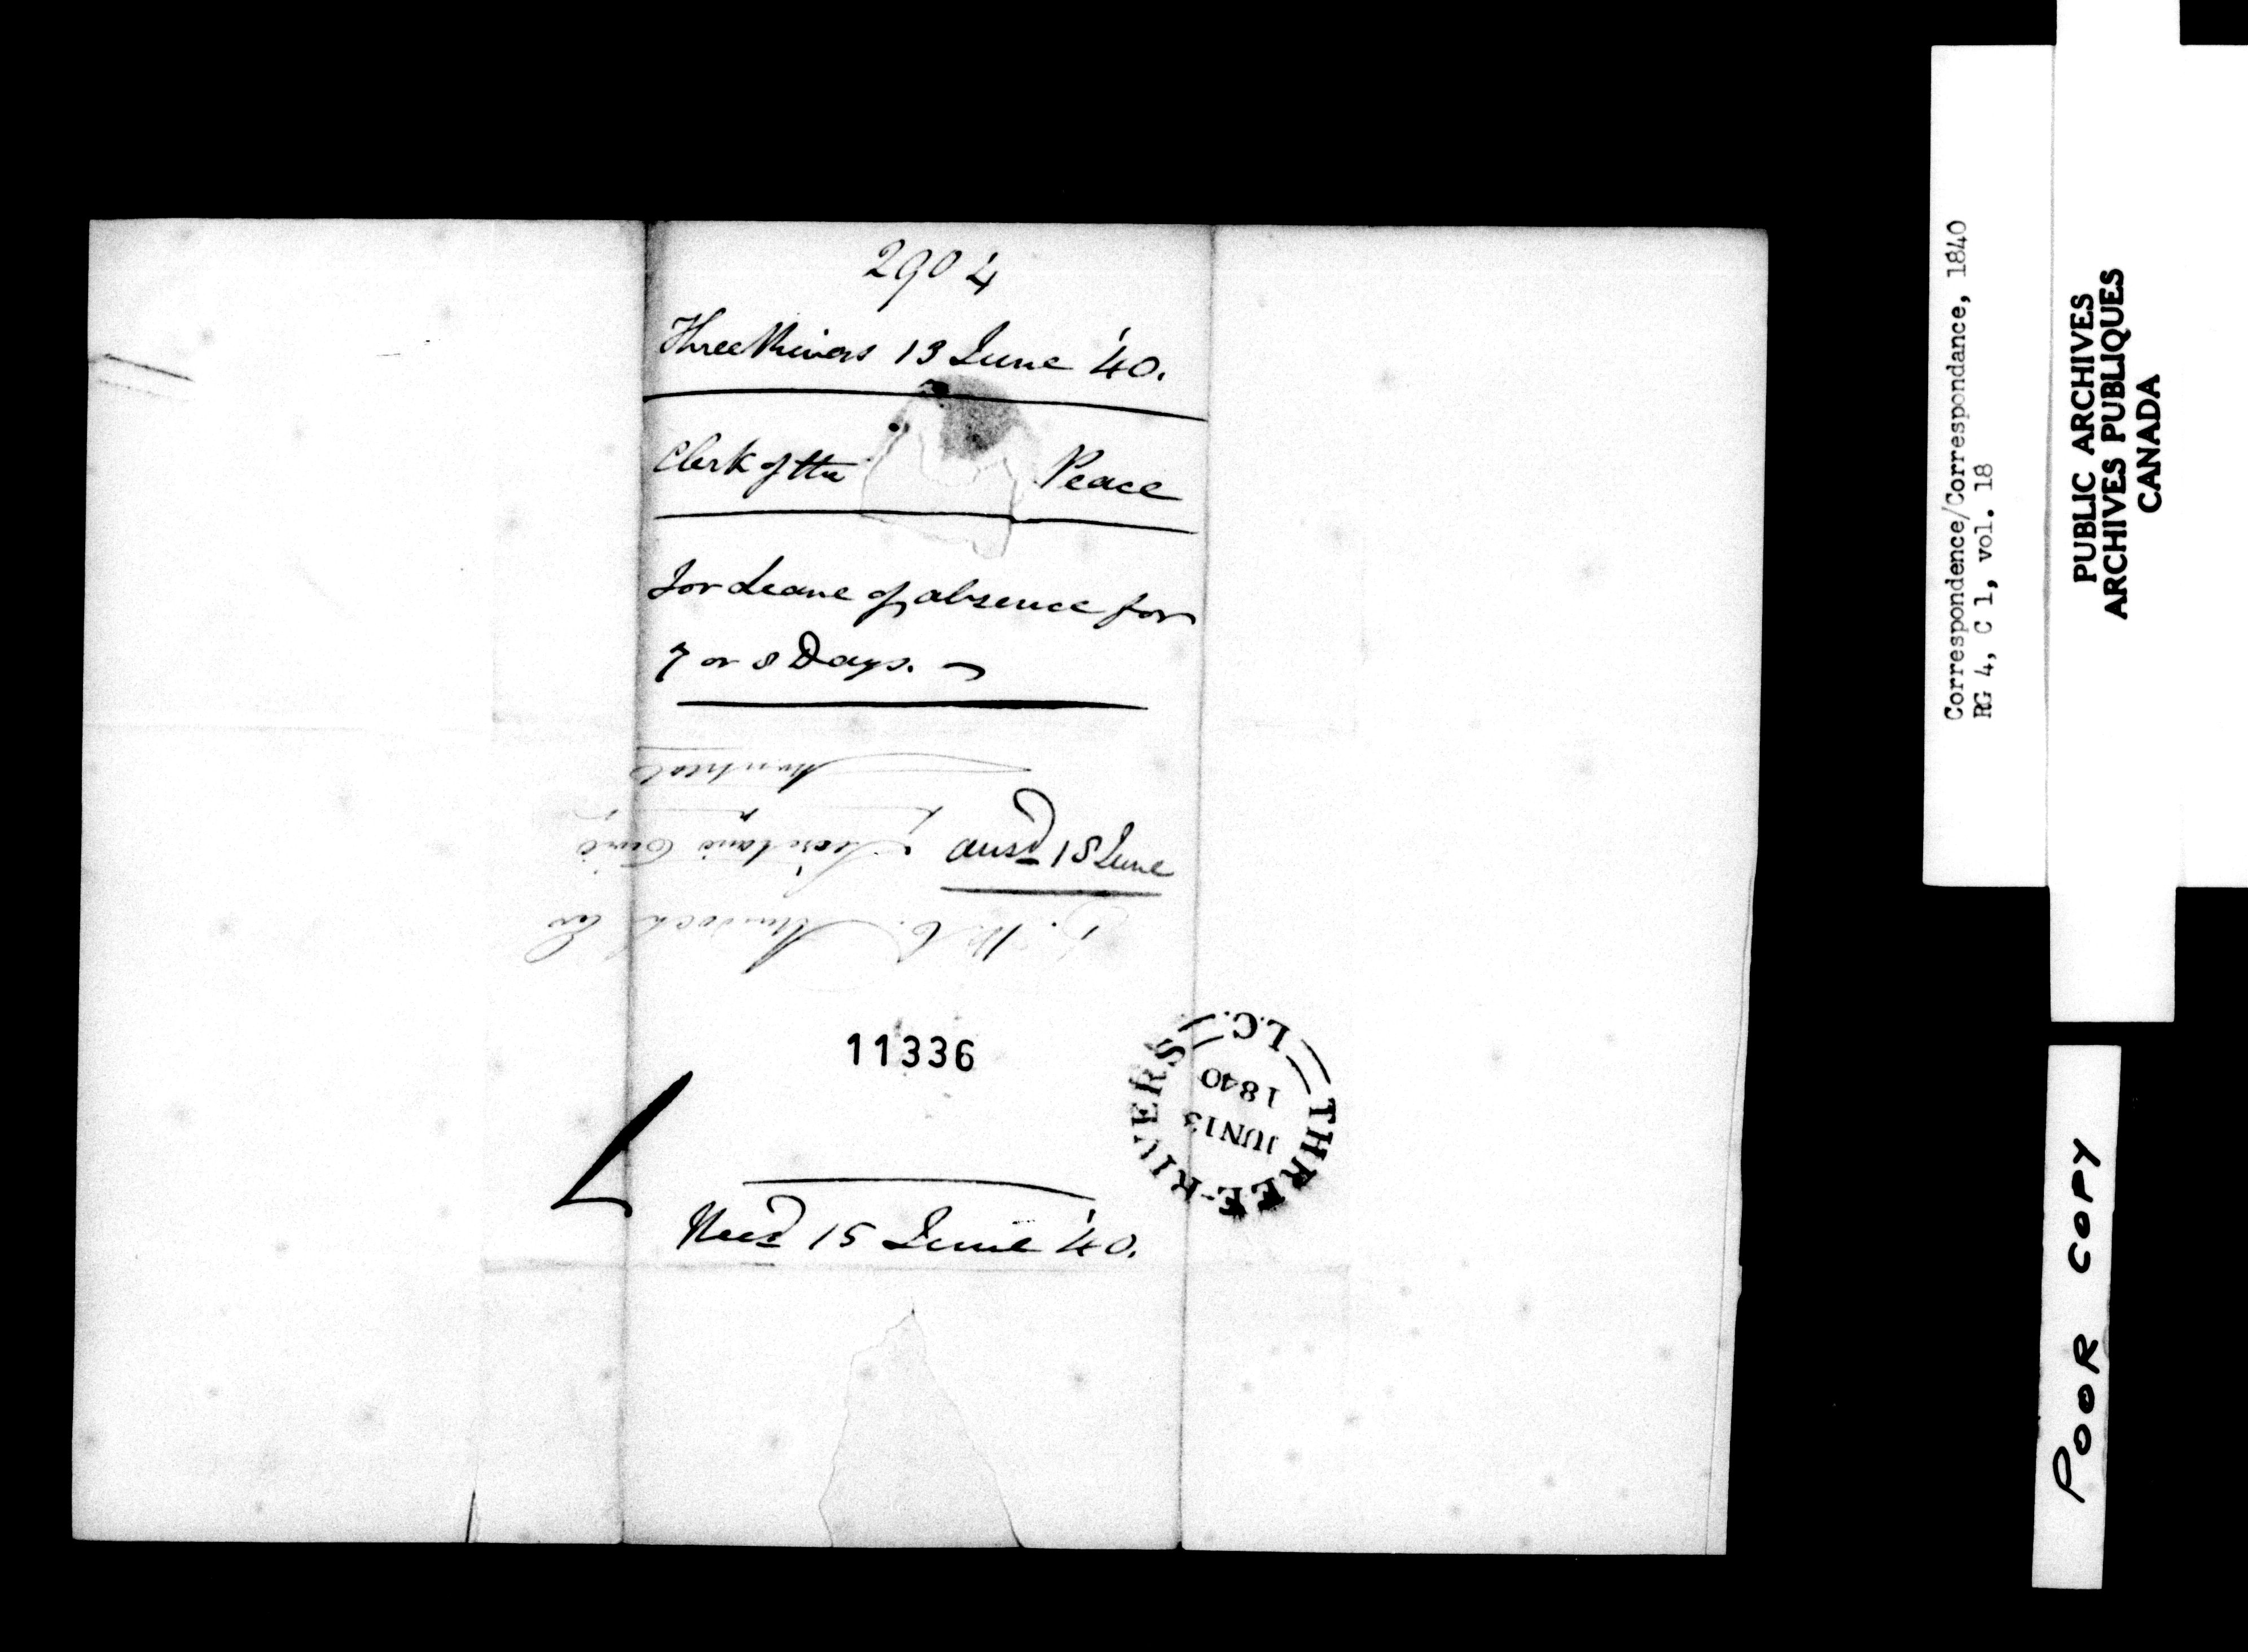 2904
Three Rivers 13 June '40.
Clerk of the Peace
For Leave of absence for
7 or 8 Days.
ansd 18 June
11336
Recd 15 June '40.
T. W. C. Murdoch
Secretaire Civil
Montreal
THREE-RIVERS L.C.
JUN 13
1840
Correspondence/Correspondance, 1840
RG 4, C 1, vol. 18
PUBLIC ARCHIVES
ARCHIVES PUBLIQUES
CANADA
POOR COPY